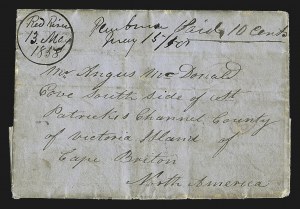 Red River
13. Mar.
1858
Pembina Paid 10 Cents
May 15/58
Mr Angus McDonald
Cove South side of St
Patrickes Channel County
of Victoria Island of
Cape Briton
North America